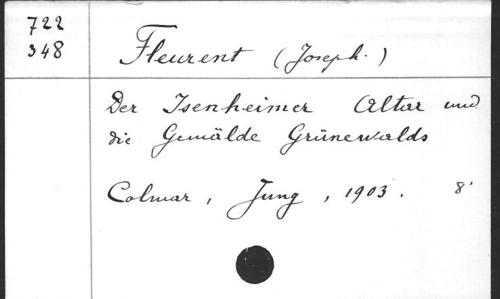 722
348
Fleurent (Joseph.)
Der Isenheimer Altar und
die Gemälde Grünewalds
Colmar, Jung, 1903. 8°